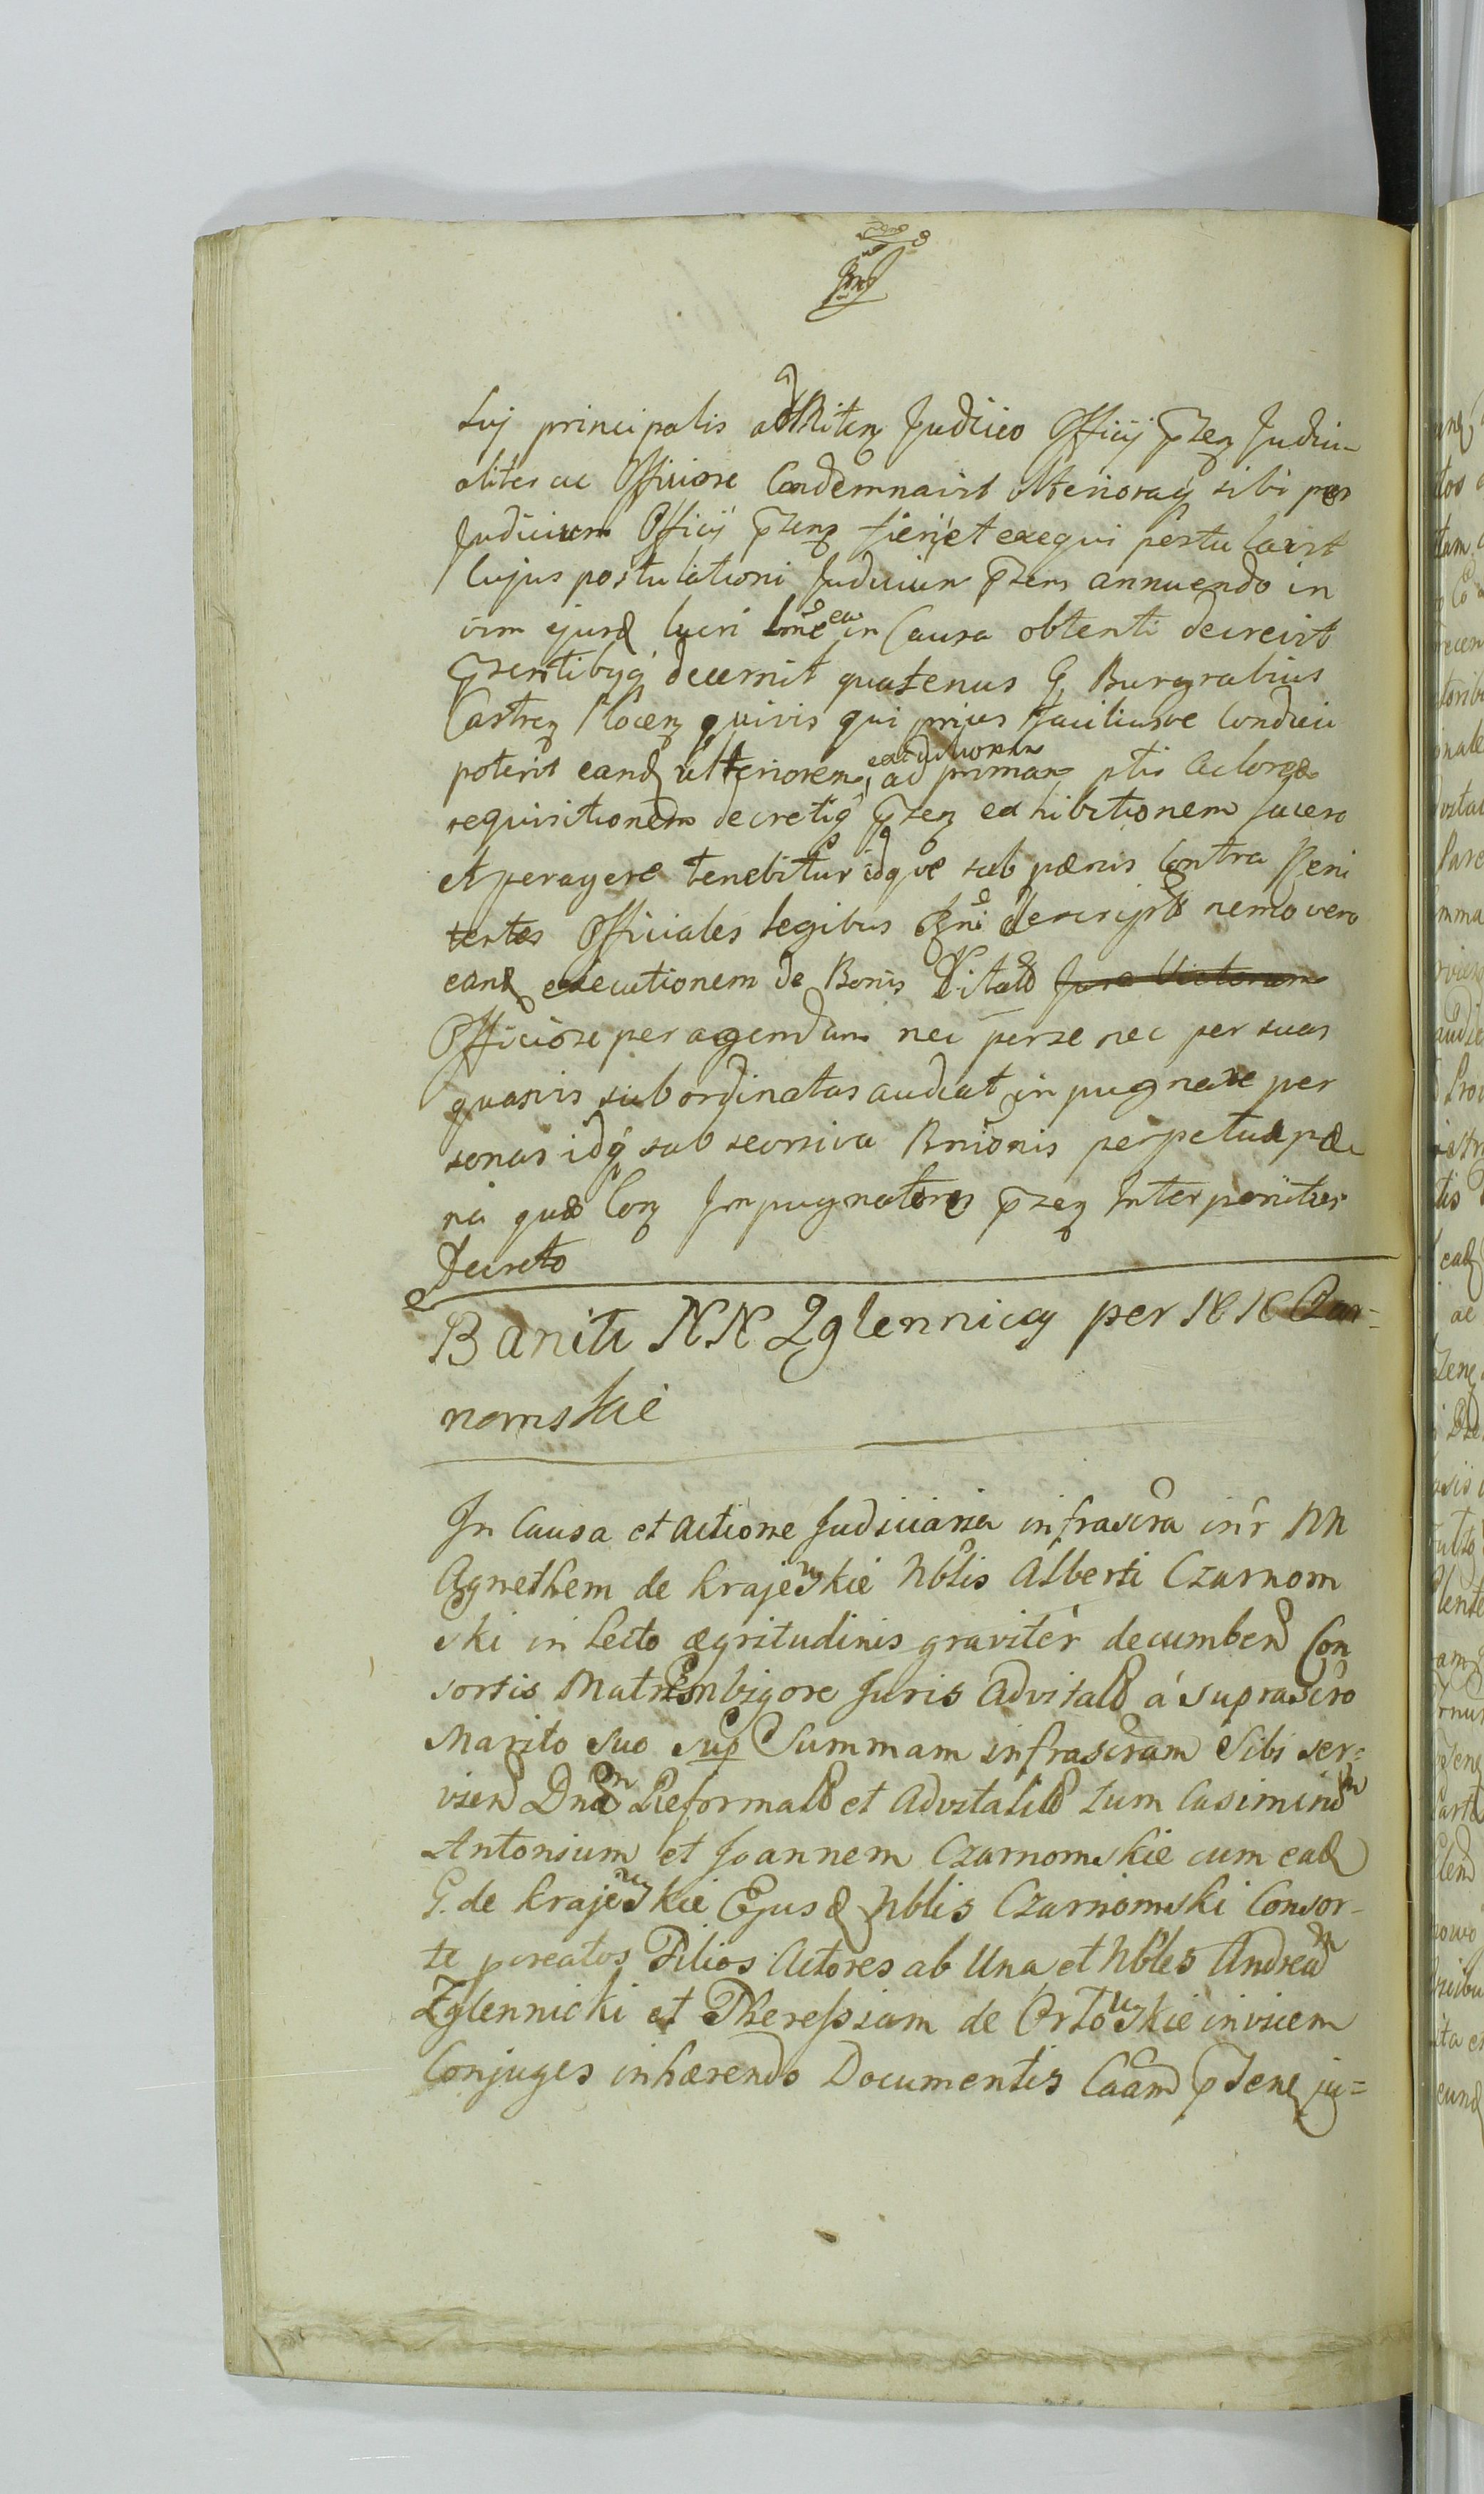 sui principalis Judicio Officij pzeq Judici
aliter ac Officiose Condemnavit ulterioraq sibi per
Judicium Officij pzens fieri et exequi postulavit
Cujus postulationi Judicium pzens annuendo in
vim ejusd lucri in ea Causa obtenti decrevit
pzentibusq decernit quatenus G Burgrabius
Castren Plocen quivis qui prius faciliusve Conduci
poterit eand ulteriorem executionem ad primam ptis Actoreæ
requisitionem decretiq pzen exhibitionem facere
et peragere tenebitur idque sub pænis Contra Reni
tentes Officiales legibus Rgni descriptis nemo vero
eand executionem de Bonis Citato Jure Victorum
Officiose peragendam nec per se nec per suas
quasvis subordinatas audeat inpugnare per
sonas idq sub seorsiva Bnionis perpetuæ pæ
na quæ Con Impugnatores pzen Interponitur
Decreto
Baniti NN Zglenniccy per NN Czar=
nomskie
In Causa et Actione Judiciaria infrascra intr NN
Agnethem de Krajewskie Nblis Alberti Czarnom
ski in Lecto ægritudinis graviter decumben Con
sortis Matrem vigore Juris Advitalis à suprascro
Marito suo sup Summam infrascram Sibi ser=
vien Dnam Reformall et Advitalem tum Casimirum
Antonium et Joannem Czarnomskie cum ead
G. de Krajewskie Ejusd Nblis Czarnomski Consor-
te pcreatos Filios Actores ab Una et Nbles Andream
Zglennicki et Theressiam de Ortowskie invicem
Conjuges inhærendo Documentis Caam pzene ju=